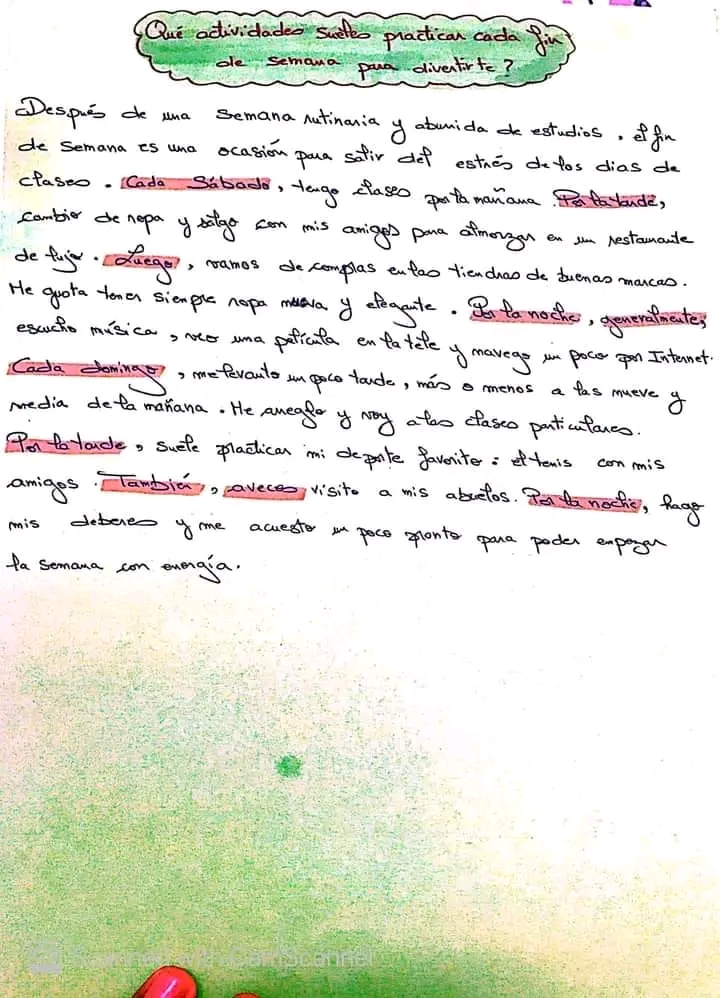 Qué actividades sueles practicar cada fin
de semana para divertirte?
Después de una semana rutinaria y aburrida de estudios, el fin
de semana es una ocasión para salir del estrés de los dias de
clases. Cada Sábado, tengo clases por la mañana. Por la tarde,
cambio de ropa y salgo con mis amigos para almorzar en un restaurante
de lujo. Luego, vamos de compras en las tiendras de buenas marcas.
Me gusta tener siempre ropa nueva y elegante. Por la noche, generalmente,
escucho música, veo una película en la tele y navego un poco por Internet.
Cada domingo, me levanto un poco tarde, más o menos a las nueve y
media de la mañana. Me arreglo y voy a las clases particulares.
Por la tarde, suele practicar mi deporte favorito: el tenis con mis
amigos. También, aveces visito a mis abuelos. Por la noche, hago
mis deberes y me acuesto un poco pronto para poder empezar
la semana con energía.
Scanned with CamScanner